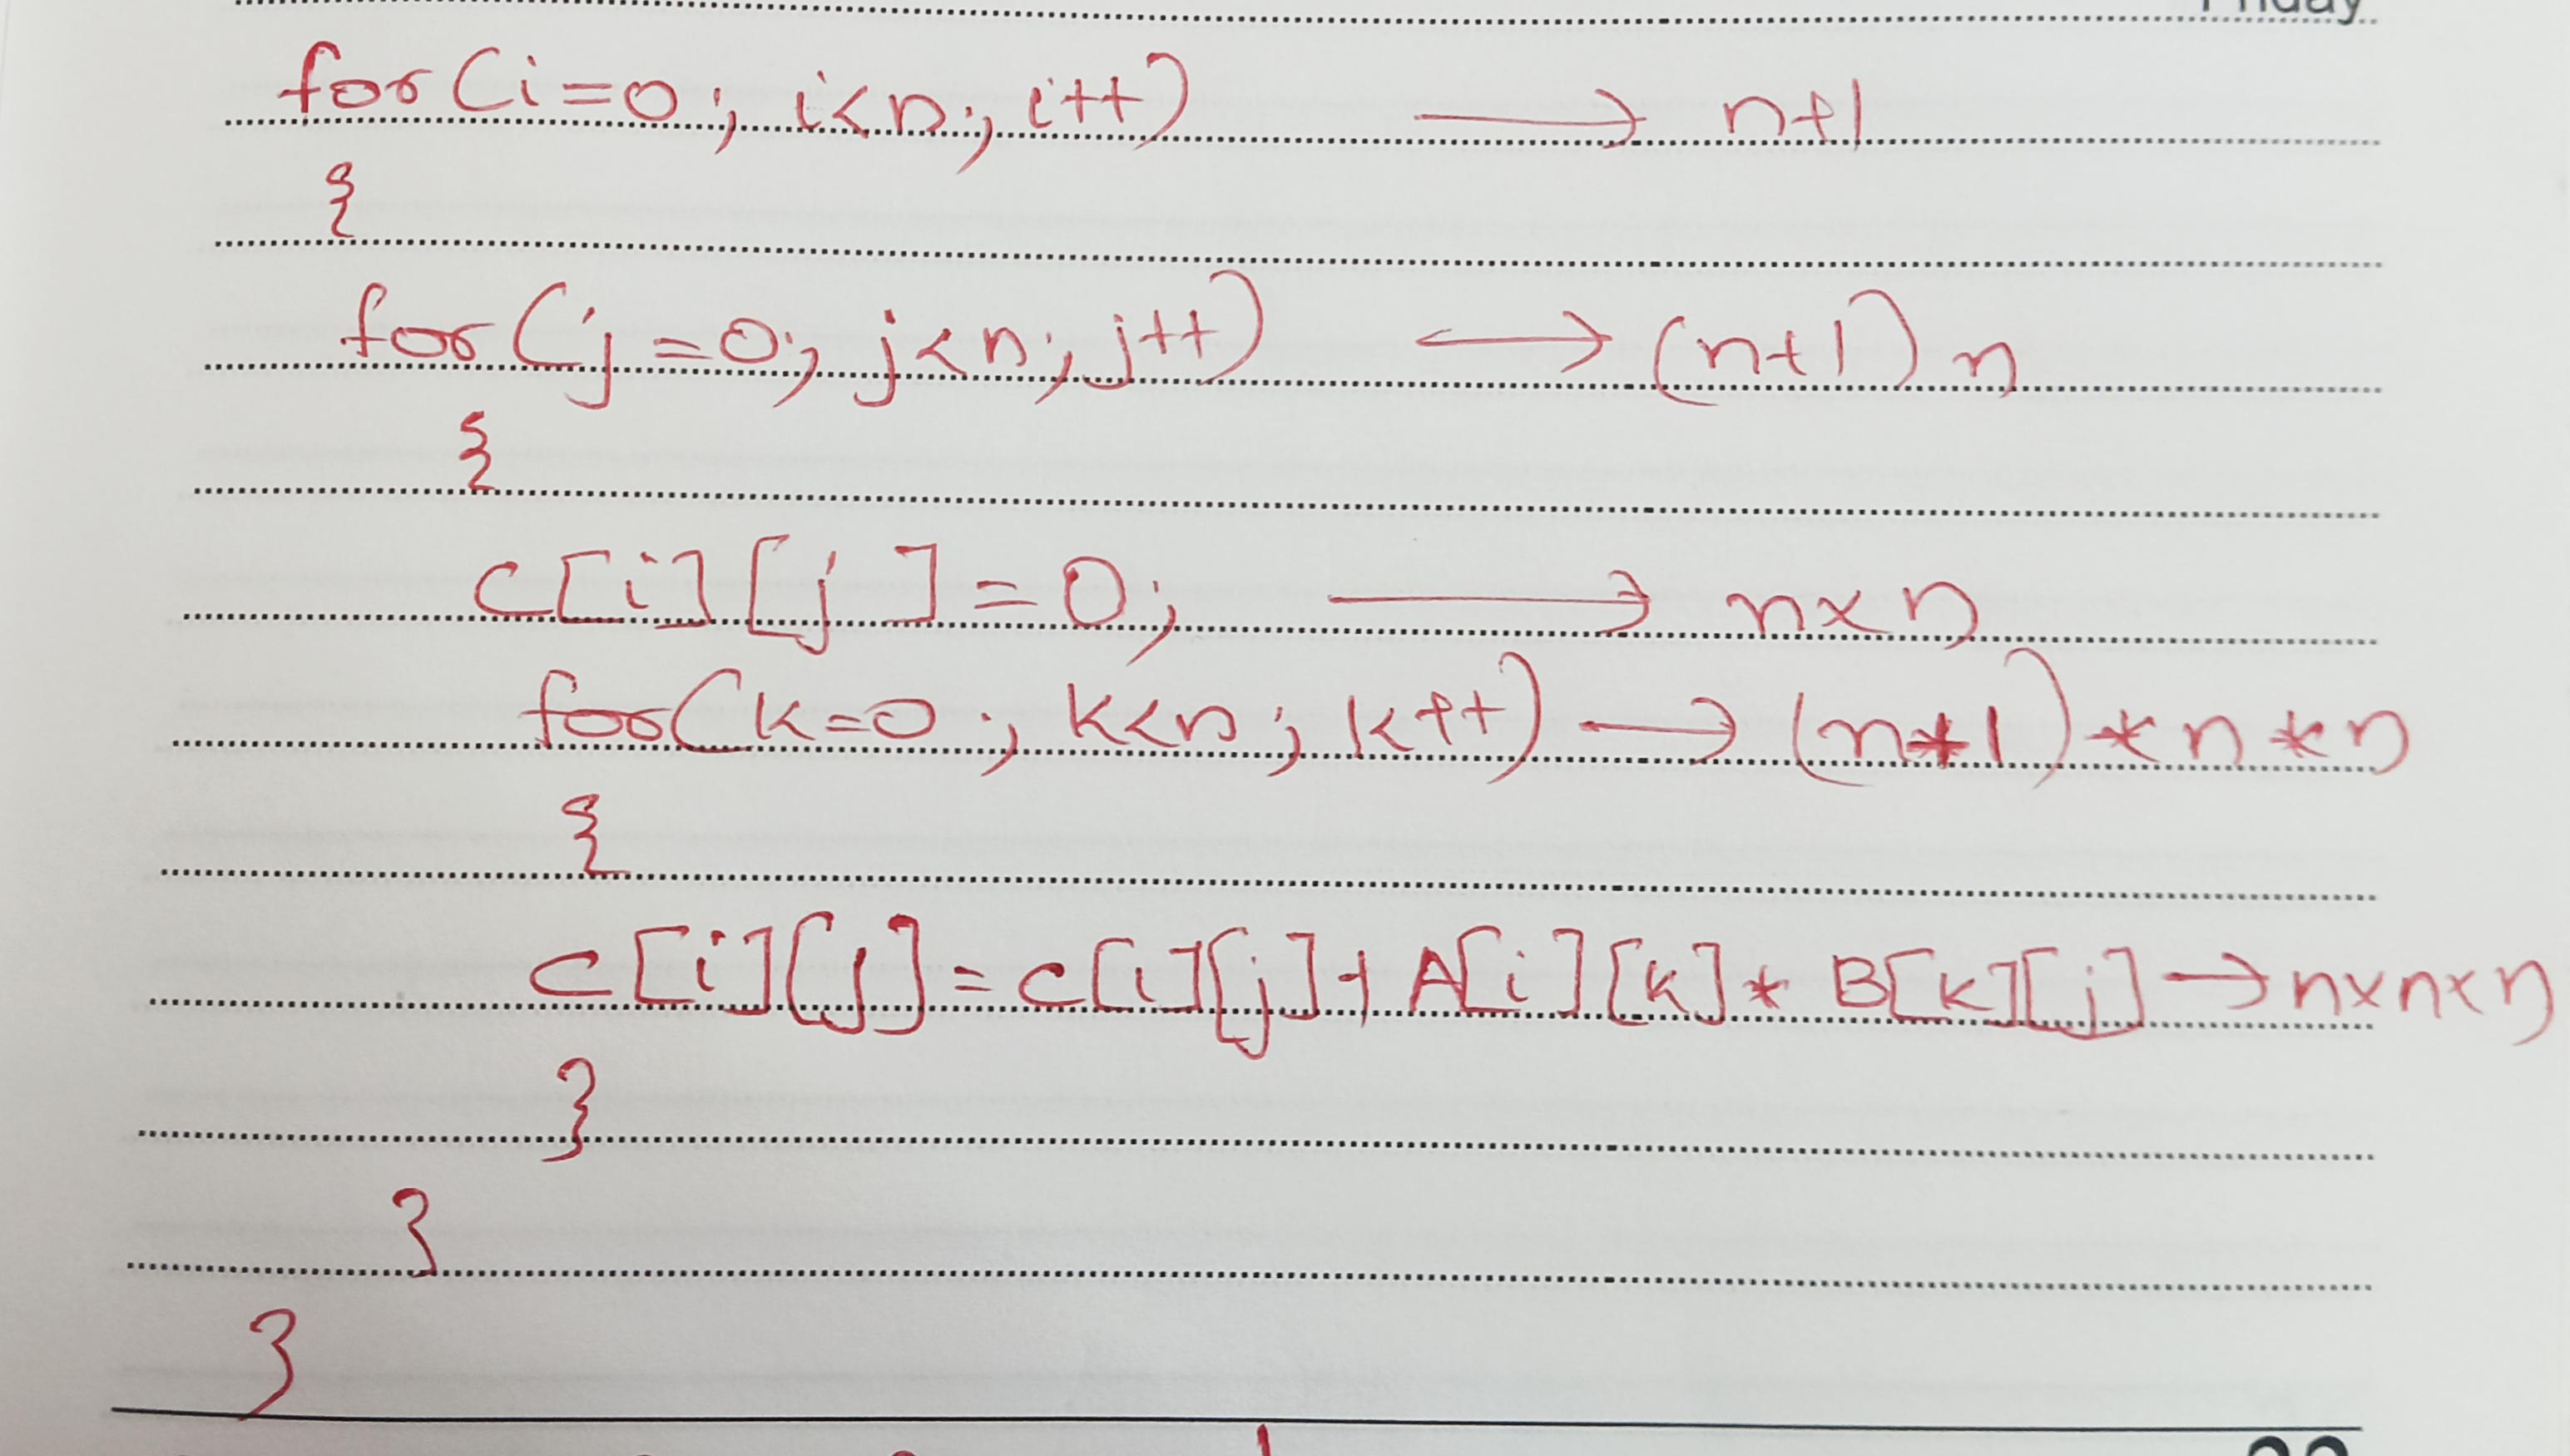 for(i=0; i<n; i++) → n+1
{
for(j=0; j<n; j++) → (n+1)n
{
c[i][j]=0; → n×n
for(k=0; k<n; k++) → (n+1)*n*n
{
c[i][j]=c[i][j]+A[i][k]*B[k][j] → n×n×n
}
}
}